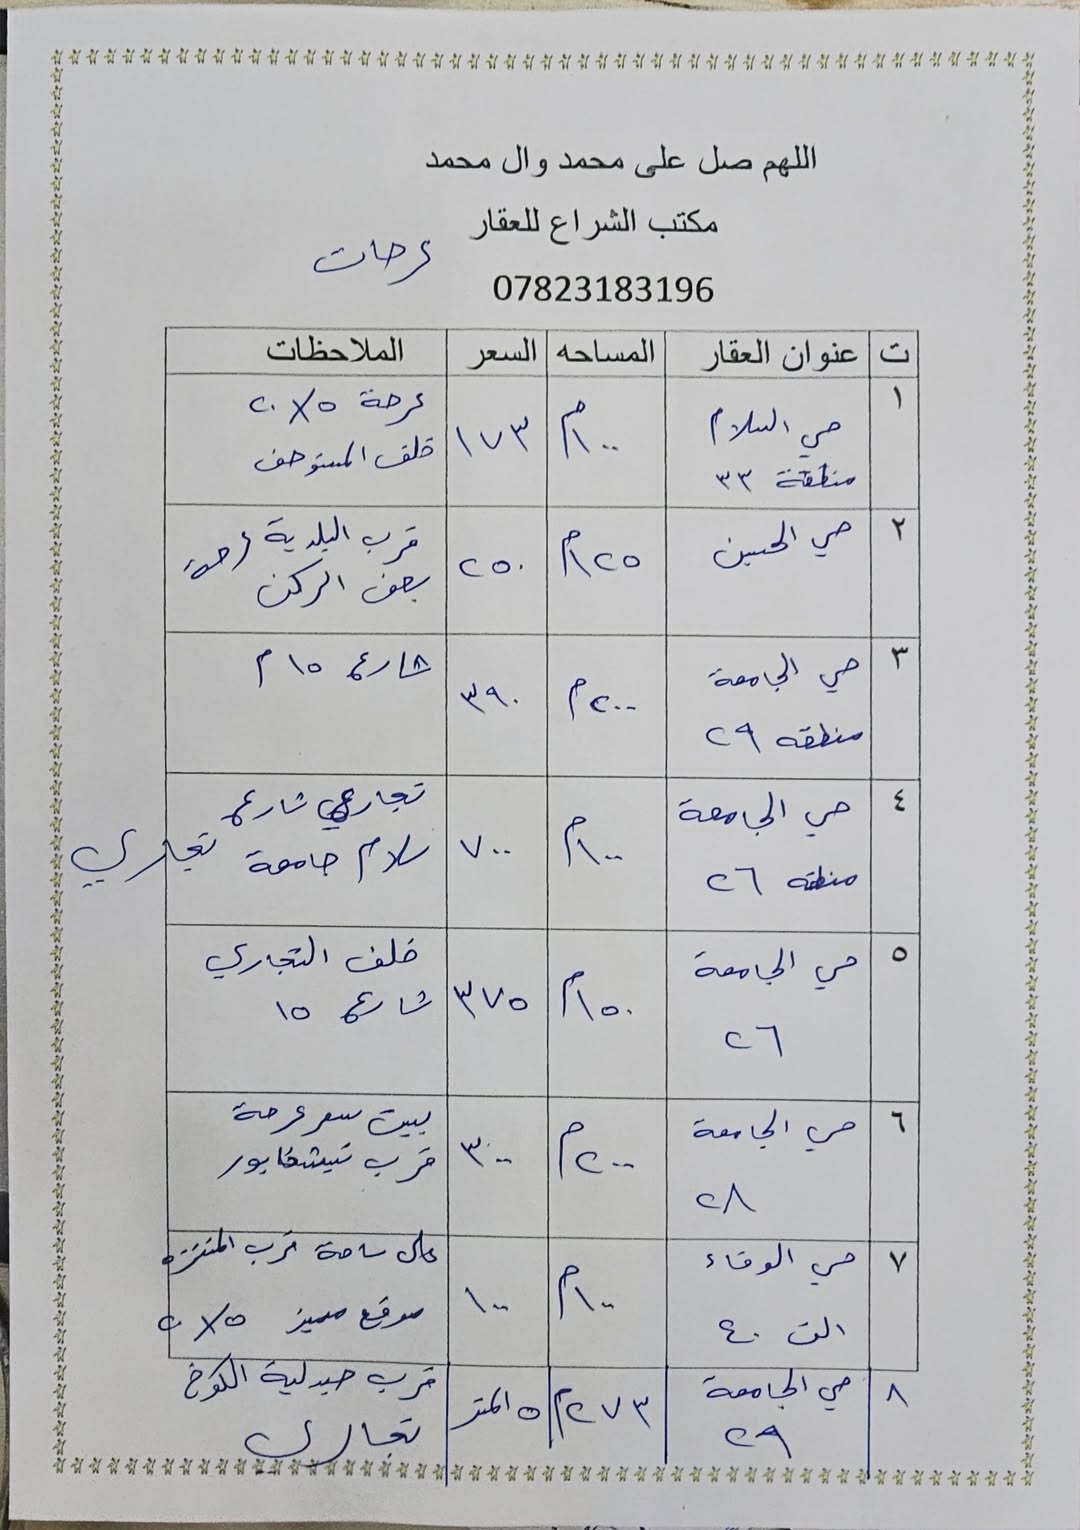 اللهم صل على محمد وال محمد
مكتب الشراع للعقار
عرصات
07823183196
ت عنوان العقار المساحه السعر الملاحظات
١ حي السلام منطقة ٣٣ ١٠٠م ١٧٣ عرصة ٥×٢٠
خلف المستوصف
٢ حي الحسين ١٢٥م ٢٥٠ قرب البلدية عرصة
بصف الركن
٣ حي الجامعة منطقه ٢٩ ٢٠٠م ٣٩٠ شارع ١٥م
٤ حي الجامعة منطقه ٢٦ ١٠٠م ٧٠٠ تجاري شارع
سلام جامعة تجاري
٥ حي الجامعة ٢٦ ١٥٠م ٣٧٥ خلف التجاري
شارع ١٥
٦ حي الجامعة ٢٨ ٢٠٠م ٣٠٠ بيت سعر عرصة
قرب
٧ حي الوفاء الف ٤٠ ١٠٠م ١٠٠ على ساحة قرب المنتزه
موقع مميز ٥×٢٠
٨ حي الجامعة ٢٩ ٢٧٣م ٥ المتر قرب صيدلية الكوخ
تجاري